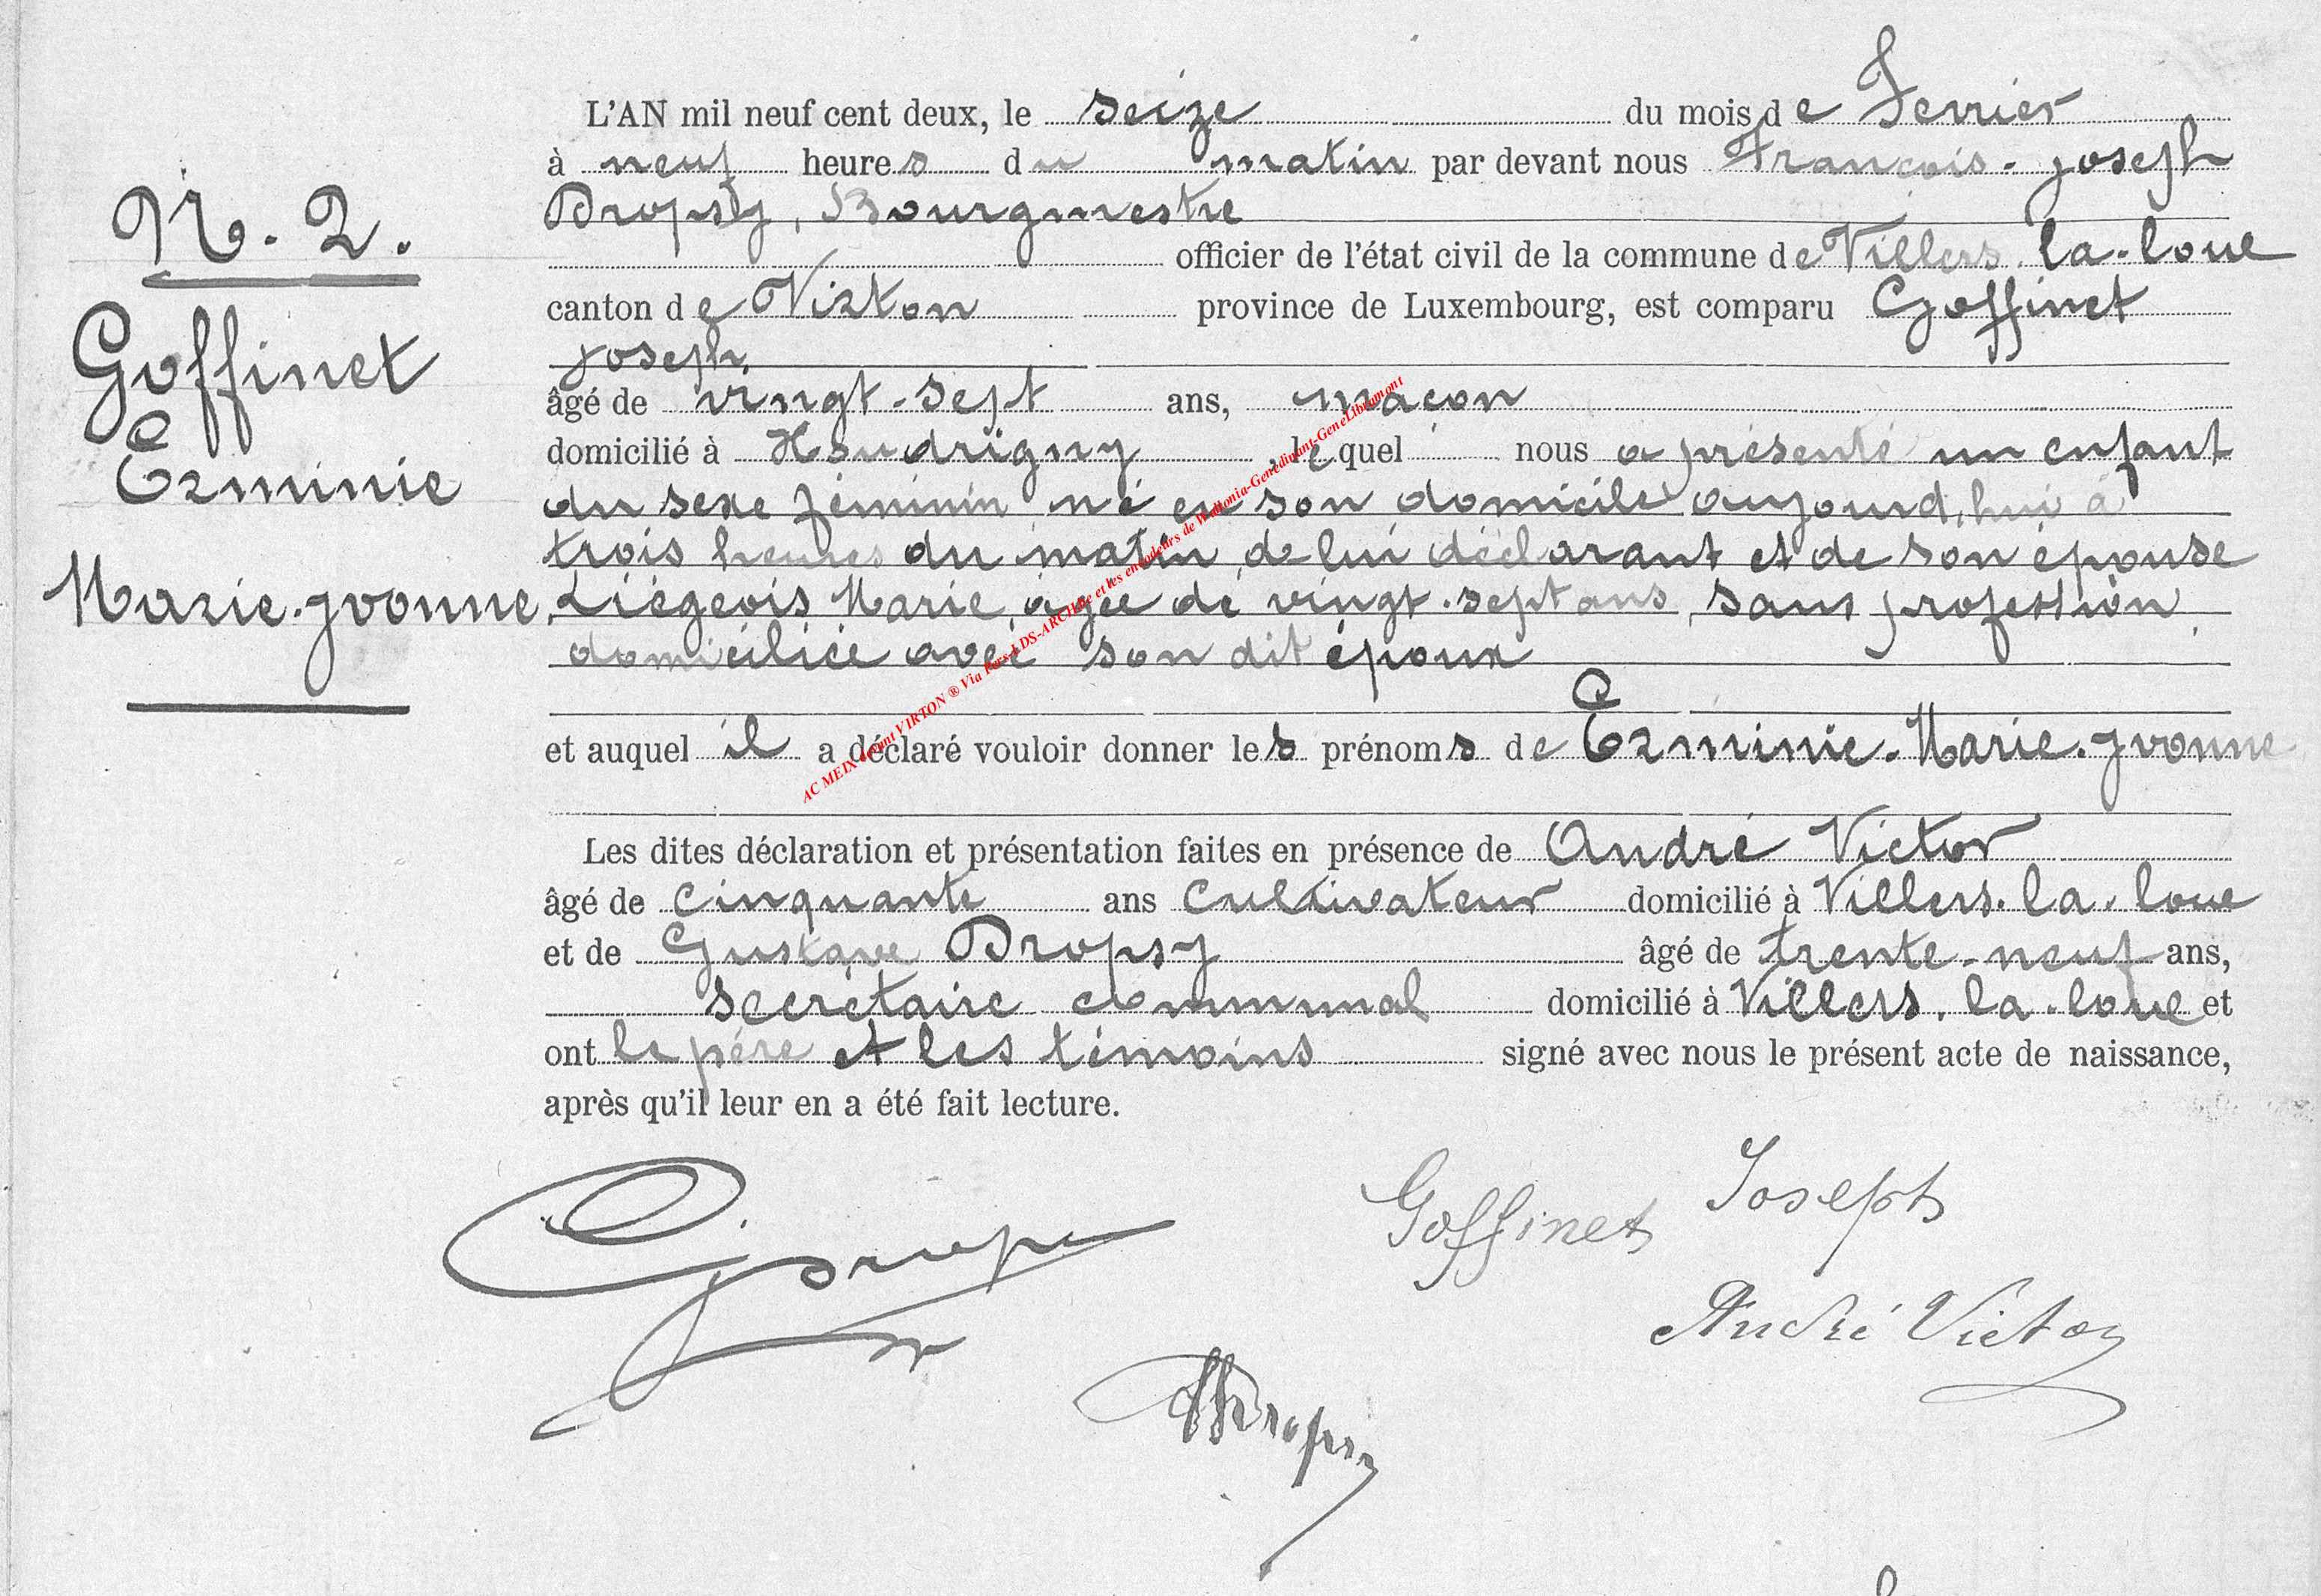 N. 2.
Goffinet
Erminie
Marie-Yvonne
L'AN mil neuf cent deux, le seize du mois de Fevrier
à neuf heures du matin par devant nous François-Joseph
Dropsy, Bourgmestre
officier de l'état civil de la commune de Villers-la-loue
canton de Virton province de Luxembourg, est comparu Goffinet
Joseph,
âgé de vingt-sept ans, maçon
domicilié à Houdrigny, lequel nous a présenté un enfant
du sexe féminin né en son domicile aujourd'hui à
trois heures du matin, de lui déclarant et de son épouse
Liégeois Marie, âgée de vingt-sept ans, sans profession,
domiciliée avec son dit époux
et auquel il a déclaré vouloir donner les prénoms de Erminie-Marie-Yvonne
Les dites déclaration et présentation faites en présence de André Victor
âgé de cinquante ans cultivateur domicilié à Villers-la-loue
et de Gustave Dropsy âgé de trente-neuf ans,
secrétaire communal domicilié à Villers-la-loue et
ont le père et les témoins signé avec nous le présent acte de naissance,
après qu'il leur en a été fait lecture.
Goffinet Joseph
André Victor
Dropsy
AC MEIX devant VIRTON ® Via Pars-LDS-ARCHBE et les encodeurs de Wallonia-Genedinant-GeneLibramont